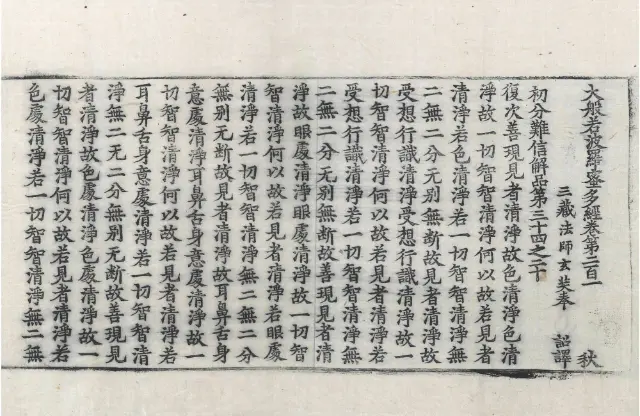 大般若波羅蜜多經卷第二百一 秋
三藏法師玄奘奉 詔譯
初分難信解品第三十四之二十
復次善現見者清淨故色清淨色清
淨故一切智智清淨何以故若見者
清淨若色清淨若一切智智清淨無
二無二分无別無斷故見者清淨故
受想行識清淨受想行識清淨故一
切智智清淨何以故若見者清淨若
受想行識清淨若一切智智清淨無
二無二分无別無斷故善現見者清
淨故眼處清淨眼處清淨故一切智
智清淨何以故若見者清淨若眼處
清淨若一切智智清淨無二無二分
無別无斷故見者清淨故耳鼻舌身
意處清淨耳鼻舌身意處清淨故一
切智智清淨何以故若見者清淨若
耳鼻舌身意處清淨若一切智智清
淨無二无二分無別无斷故善現見
者清淨故色處清淨色處清淨故一
切智智清淨何以故若見者清淨若
色處清淨若一切智智清淨無二無